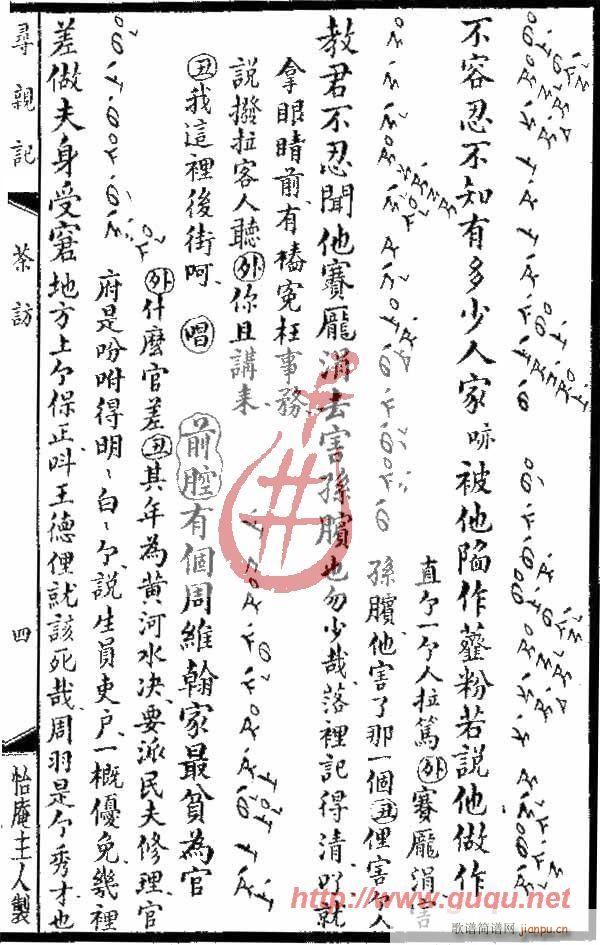 不容忍不知有多少人家哧被他陷作虀粉若說他做作
直个一个人拉篤外賽龐涓害
孫臏他害了那一個丑俚害个人
教君不忍聞他賽龐涓去害孫臏也勿少哉落裡記得清吖就
拿眼睛前有樁寃枉事務
說撥拉客人聽外你且講来
丑我這裡後街呵唱前腔有個周維翰家最貧為官
外什麼官差丑其年為黄河水决要派民夫修理官
府是吩咐得明明白白个說生員吏戶一概優免幾裡
差做夫身受窘地方上个保正呌王德俚就該死哉周羽是个秀才也
尋親記
茶訪
四
怡庵主人製
http://www.guqu.net
歌谱简谱网
jianpu.cn